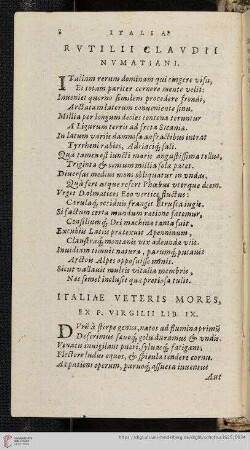 8 ITALIAE
RVTILII CLAVDII
NVMATIANI.
ITaliam rerum dominam qui cingere visu,
Et totam pariter cernere mente velit:
Inueniet quernæ similem procedere frondi,
Arctatam laterum conueniente sinu.
Millia per longum decies centena teruntur
A Ligurum terris ad freta Sicana.
In latum variis damnosa anfractibus intrat
Tyrrheni rabies, Adriaciq́ sali.
Qua tamen est iuncti maris angustissima tellus,
Triginta & centum millia sola patet.
Diuersas medius mons obliquatur in vndas,
Quà fert atque refert Phœbus vterque diem.
Vrget Dalmaticos Eoo vertice fluctus:
Cærulaq́, occiduis frangit Etrusca iugis.
Si factum certa mundum ratione fatemur,
Consiliumq́, Dei machina tanta fuit:
Excubiis Latiis prætexuit Apenninum,
Claustraq́, montanis vix adeunda viis.
Inuidiam timuit natura, parumq́, putauit
Arctois Alpes opposuisse minis.
Sicut vallauit multis vitalia membris,
Nec semel inclusit quæ pretiosa tulit.
ITALIAE VETERIS MORES,
EX P. VIRGILII LIB. IX.
DVrũ à stirpe genus, natos ad flumina primũ
Deferimus, sæuoq́, gelu duramus & vndis:
Venatu inuigilant pueri, syluasq́, fatigant,
Flectere ludus equos, & spicula tendere cornu.
At patiens operum, paruoq́, assueta iuuentus
Aut